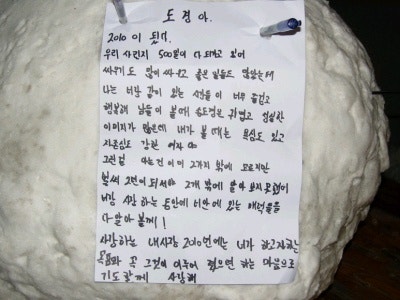 도경아.
2010이 됐다.
우리 사귄지 500일이 다 되가고 있어
싸우기도 많이 싸우고 좋은 일들도 많았는데
나는 너랑 같이 있는 시간들이 너무 즐겁고
행복해 남들이 볼때 도경은 귀엽고 성실한
이미지가 많은데 내가 볼때는 욕심도 있고
자존심도 강한 여자야
그런걸 아는건 이미 2가지 밖에 모르지만
벌써 2년이 되서야 2개 밖에 알아보지 못했어
너랑 사랑 하는 동안에 너안에 있는 매력들을
다 알아 볼께!
사랑하는 내사랑 2010년에는 너가 하고자하는
목표와 꼭 그것이 이루어 졌으면 하는 마음으로
기도할께 사랑해